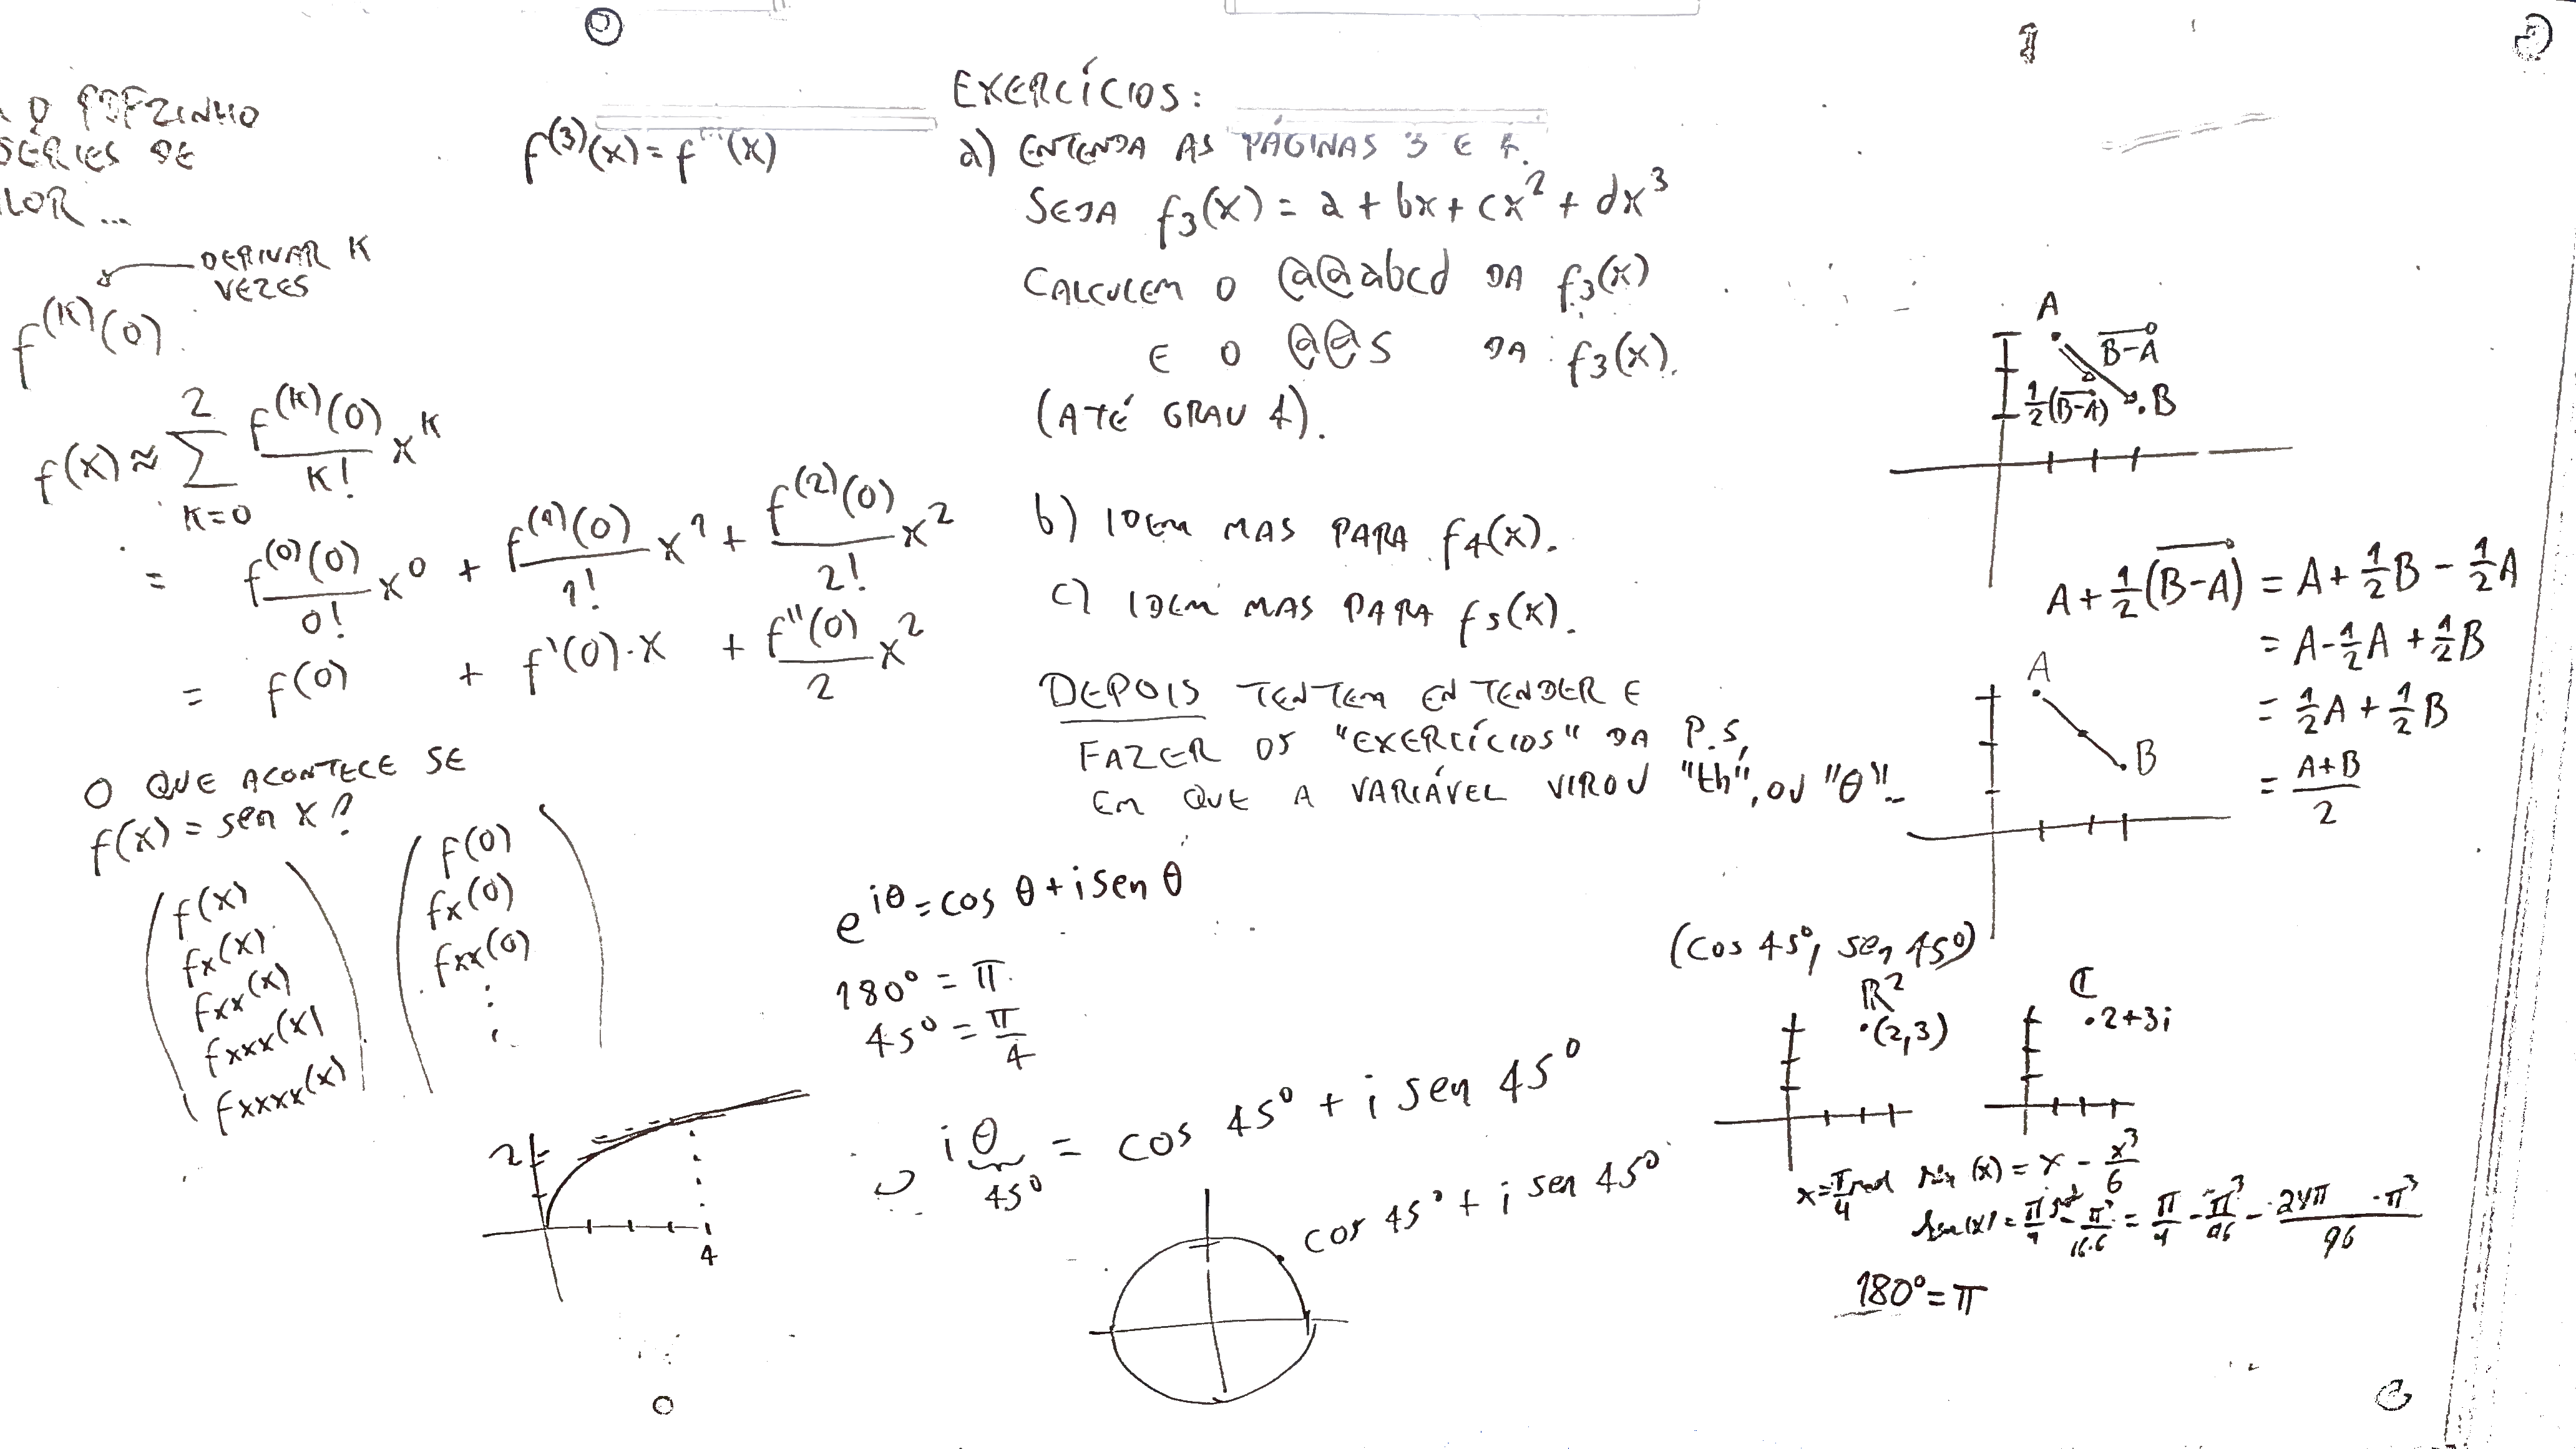 O PDFZINHO
SÉRIES DE
LOR ...
DERIVAR K
VEZES
f^(K)(0)
f(x) ≈ Σ_{K=0}^{2} f^(K)(0)/K! x^K
= f^(0)(0)/0! x^0 + f^(1)(0)/1! x^1 + f^(2)(0)/2! x^2
= f(0) + f'(0)·x + f''(0)/2 x^2
O QUE ACONTECE SE
f(x) = sen x?
f(x)
fx(x)
fxx(x)
fxxx(x)
fxxxx(x)
f(0)
fx(0)
fxx(0)
⋮
2
4
f^(3)(x) = f'''(x)
EXERCÍCIOS:
a) ENTENDA AS PÁGINAS 3 E 4.
SEJA f3(x) = a + bx + cx^2 + dx^3
CALCULEM O @@abcd DA f3(x)
E O @@s DA f3(x).
(ATÉ GRAU 4).
b) IDEM MAS PARA f4(x).
c) IDEM MAS PARA f5(x).
DEPOIS TENTEM ENTENDER E
FAZER OS "EXERCÍCIOS" DA P.5,
EM QUE A VARIÁVEL VIROU "th", OU "θ"...
e^{iθ} = cos θ + i sen θ
180° = π
45° = π/4
iθ = cos 45° + i sen 45°
45°
cos 45° + i sen 45°
A
B-A
1/2(B-A)
B
A + 1/2(B-A) = A + 1/2B - 1/2A
= A - 1/2A + 1/2B
= 1/2A + 1/2B
= A+B/2
A
B
(cos 45°, sen 45°)
R^2
(2,3)
C
2+3i
x = π/4 rad sin(x) = x - x^3/6
sen(x) = π/4 - π^3/16·6 = π/4 - π^3/96 - 24π - π^3/96
180° = π